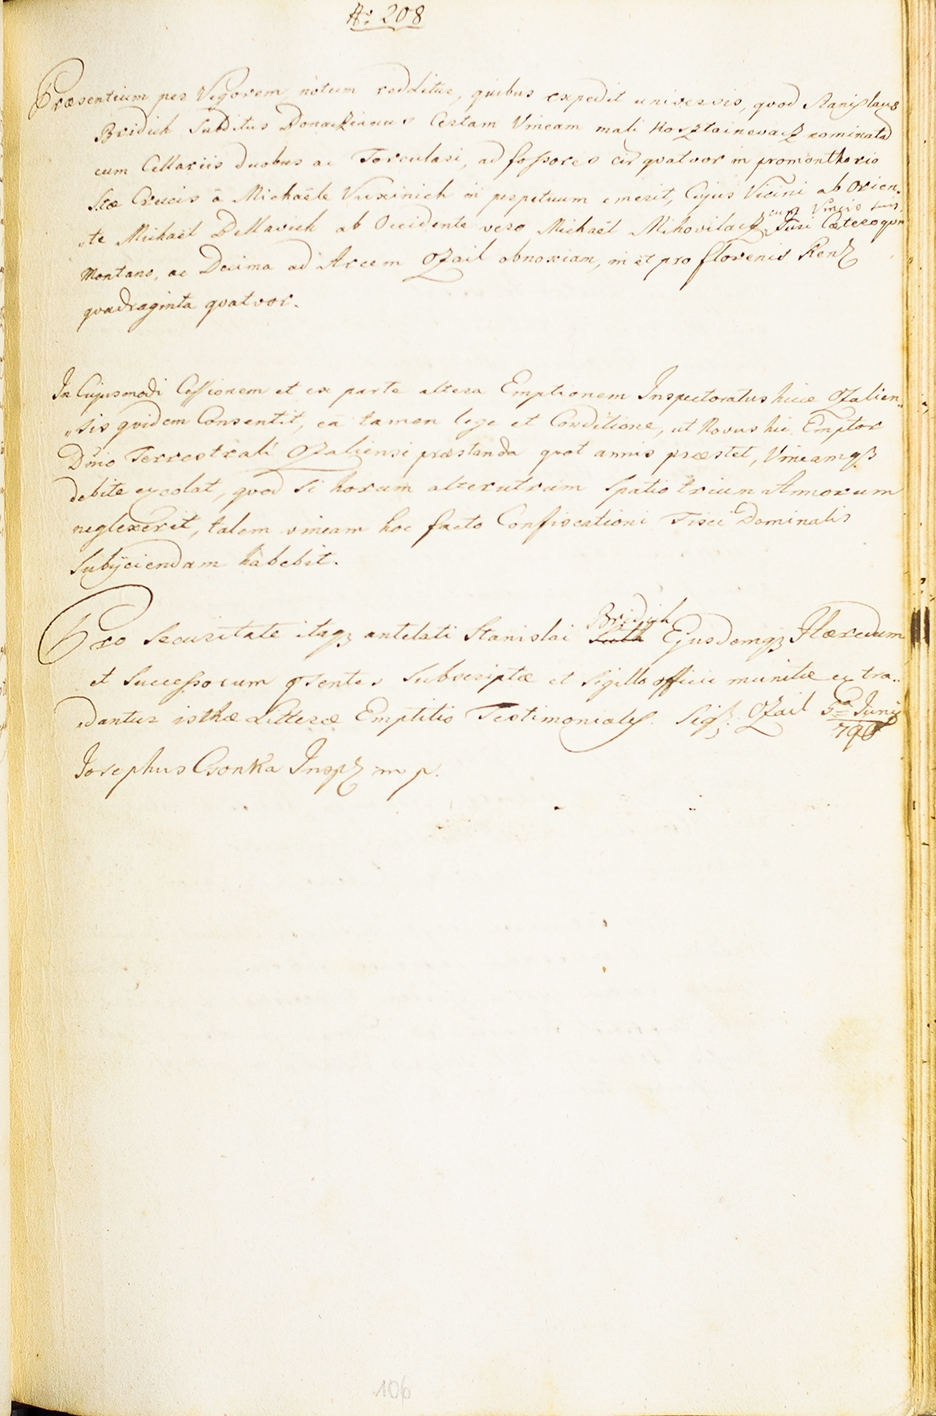 N: 208
Præsentium per Vigorem notum redditur, quibus expedit universis, quod Stanislaus
Bridich Subditus Donackianus Certam Vineam mali nominata
cum Cellariis duobus ac Torculari, ad fossores cir quatuor in promonthorio
Stæ Crucis à Michaële Vuxinich in perpetuum emerit, Cujus Vicini ab Orien-
te Michaël DMavich ab Occidente vero Michaël Mihovilacz cum Vineis suis Juri Cæteroqvin
Montano, ac Decima ad Arcem Ozail obnoxiam, in et pro florenis Renz
quadraginta quatuor.
In Cujusmodi Cessionem et ex parte altera Emptionem Inspectoratus hicce Ozalien-
sis quidem Consentit, eâ tamen lege et Conditione, ut Novus hic Emptor
Dño Terrestrali Ozaliensi præstanda quot annis præstet, Vineamqz
debite excolat, quod si horum alterutrum Spatio trium Annorum
neglexerit, talem vineam hoc facto Confiscationi Fisci Dominalis
Subÿciendam habebit.
Pro Securitate itaqz antelati Stanislai Bridich Ejusdemqz Hæredum
et Successorum pñsentes Subscriptæ et Sigillo officii munitæ extra-
dantur isthæ Litteræ Emptitio Testimoniales. Sigz. Ozail 5ª Junij
790
Josephus Csonka Inspz m p.
106